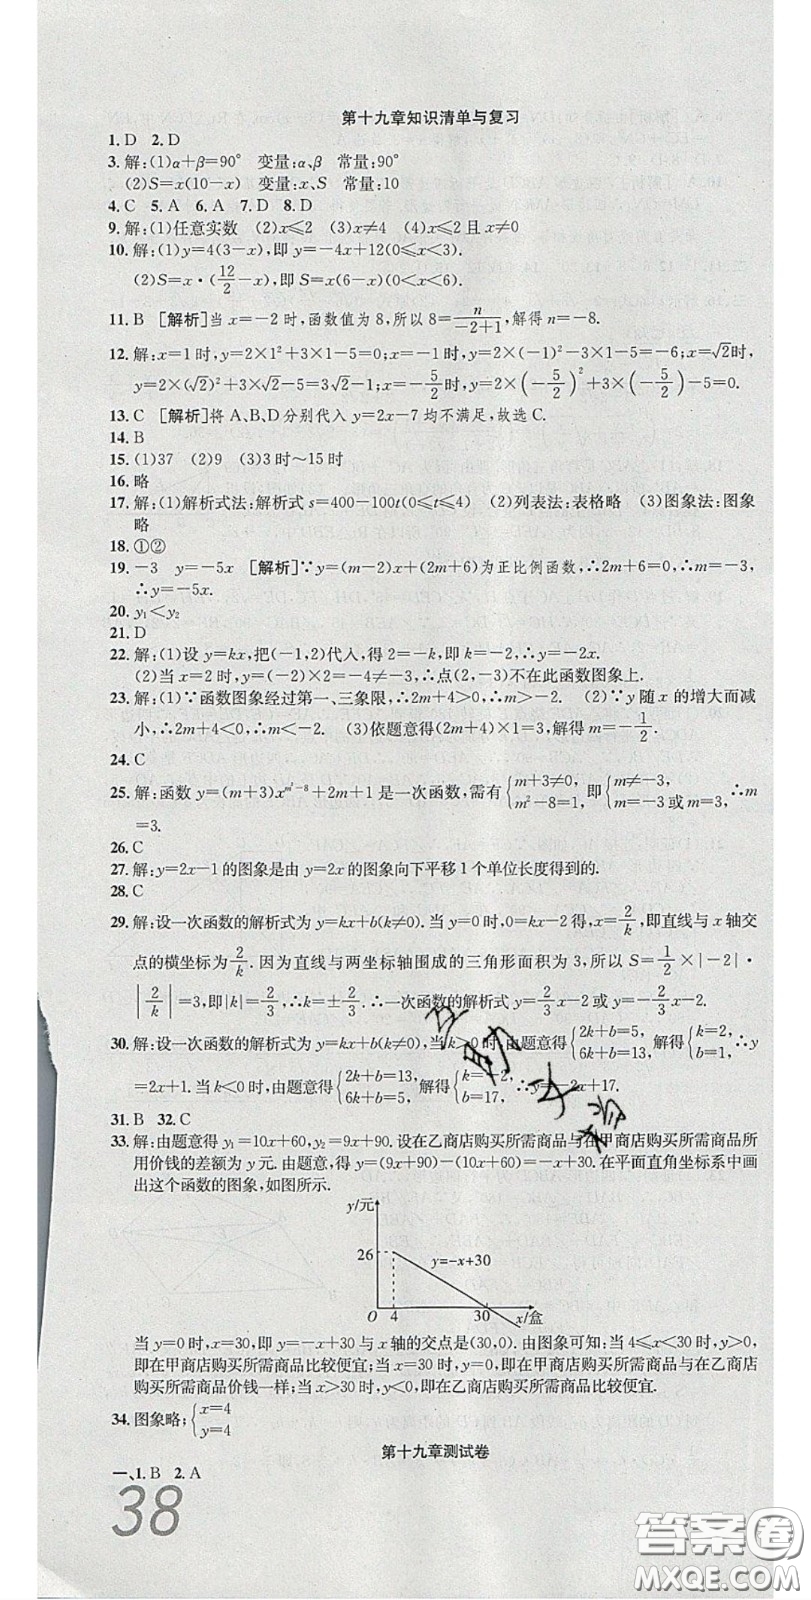 第十九章知识清单与复习
1. D  2. D
3. 解:(1)α+β=90°  变量:α、β  常量:90°
(2)S=x(10-x)  变量:x、S  常量:10
4. C  5. A  6. A  7. D  8. D
9. 解:(1)任意实数  (2)x≤2  (3)x≠4  (4)x≤2且x≠0
10. 解:(1)y=4(3-x),即y=-4x+12(0≤x<3).
(2)S=x·(12/2-x),即S=x(6-x)(0<x<6).
11. B  [解析]当x=-2时,函数值为8,所以8=n/(-2+1),解得n=-8.
12. 解:x=1时,y=2×1²+3×1-5=0;x=-1时,y=2×(-1)²-3×1-5=-6;x=√2时,
y=2×(√2)²+3×√2-5=3√2-1;x=-5/2时,y=2×(-5/2)²+3×(-5/2)-5=0.
13. C  [解析]将A、B、D分别代入y=2x-7均不满足,故选C.
14. B
15. (1)37  (2)9  (3)3时~15时
16. 略
17. 解:(1)解析式法:解析式s=400-100t(0≤t≤4)  (2)列表法:表格略  (3)图象法:图象
略
18. ①②
19. -3  y=-5x  [解析]∵y=(m-2)x+(2m+6)为正比例函数,∴2m+6=0,∴m=-3,
∴y=-5x.
20. y₁<y₂
21. D
22. 解:(1)设y=kx,把(-1,2)代入,得2=-k,即k=-2,∴y=-2x.
(2)当x=2时,y=(-2)×2=-4≠-3,∴点(2,-3)不在此函数图象上.
23. 解:(1)∵函数图象经过第一、三象限,∴2m+4>0,∴m>-2.  (2)∵y随x的增大而减
小,∴2m+4<0,∴m<-2.  (3)依题意得(2m+4)×1=3,解得m=-1/2.
24. C
25. 解:函数y=(m+3)x^(m²-8)+2m+1是一次函数,需有{m+3≠0, m²-8=1,即{m≠-3, m=-3或m=3,∴m
=3.
26. C
27. 解:y=2x-1的图象是由y=2x的图象向下平移1个单位长度得到的.
28. C
29. 解:设一次函数的解析式为y=kx+b(k≠0).当y=0时,0=kx-2得,x=2/k,即直线与x轴交
点的横坐标为2/k.因为直线与两坐标轴围成的三角形面积为3,所以S=1/2×|-2|·
|2/k|=3,即|k|=2/3,∴k=±2/3.∴一次函数的解析式y=2/3x-2或y=-2/3x-2.
30. 解:设一次函数的解析式为y=kx+b(k≠0),当k>0时,由题意得{2k+b=5, 6k+b=13,解得{k=2, b=1,∴y
=2x+1.当k<0时,由题意得{2k+b=13, 6k+b=5,解得{k=-2, b=17,∴y=-2x+17.
31. B  32. C
33. 解:由题意得y₁=10x+60,y₂=9x+90.设在乙商店购买所需商品与在甲商店购买所需商品所
用价钱的差额为y元.由题意,得y=(9x+90)-(10x+60)=-x+30.在平面直角坐标系中画
出这个函数的图象,如图所示.
y/元
26
y=-x+30
O  4  30  x/盒
当y=0时,x=30,即y=-x+30与x轴的交点是(30,0).由图象可知;当4≤x<30时,y>0,
即在甲商店购买所需商品比较便宜;当x=30时,y=0,即在甲商店购买所需商品与在乙商
店购买所需商品价钱一样;当x>30时,y<0,即在乙商店购买所需商品比较便宜.
34. 图象略;{x=4 y=4
第十九章测试卷
一、1. B  2. A
38
答案圈
MXQE.COM